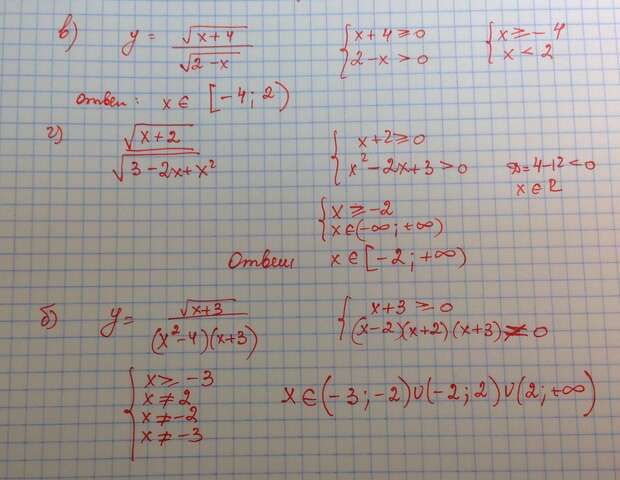 в) y = √(x+4) / √(2−x) { x+4 ≥ 0 { x ≥ −4
2−x > 0 x < 2
Ответ: x ∈ [−4; 2)
г) √(x+2) / √(3−2x+x²) { x+2 ≥ 0
x²−2x+3 > 0 D=4−12<0
x ∈ R
{ x ≥ −2
x ∈ (−∞; +∞)
Ответ x ∈ [−2; +∞)
б) y = √(x+3) / (x²−4)(x+3) { x+3 ≥ 0
(x−2)(x+2)(x+3) ≠ 0
{ x ≥ −3
x ≠ 2
x ≠ −2
x ≠ −3
x ∈ (−3; −2) ∪ (−2; 2) ∪ (2; +∞)